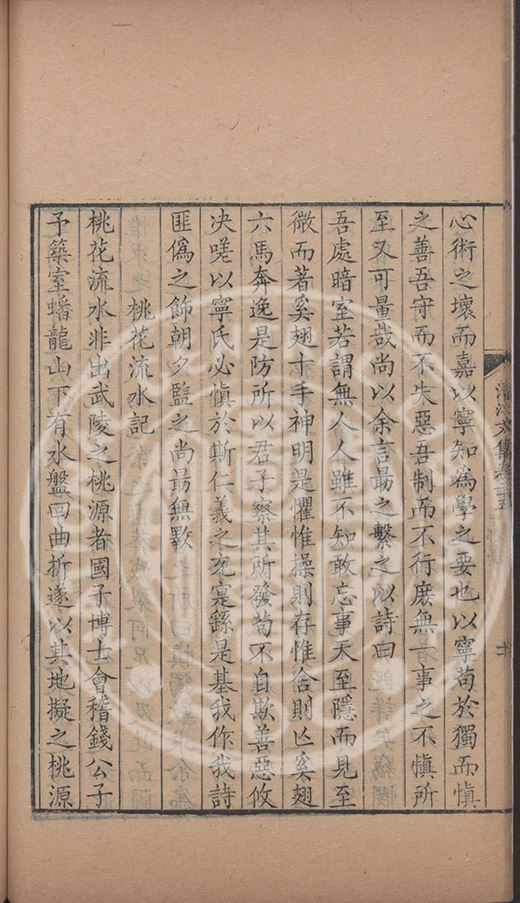 心術之壞而嘉以寧知爲學之要也以寧茍於獨而愼
之善吾守而不失惡吾制而不行庶無一事之不愼所
至又可量哉尚以余言勗之繫之以詩曰
吾處暗室若謂無人人雖不知敢忘事天至隱而見至
微而著奚翅十手神明是懼惟操則存惟舍則亾奚翅
六馬奔逸是防所以君子察其所發茍不自欺善惡攸
决嗟以寧氏必愼於斯仁義之充寔繇是基我作我詩
匪僞之飾朝夕監之尚勗無斁
桃花流水記
桃花流水非出武陵之桃源者國子博士會稽錢公子
予築室蟠龍山下有水盤回曲折遂以其地擬之桃源